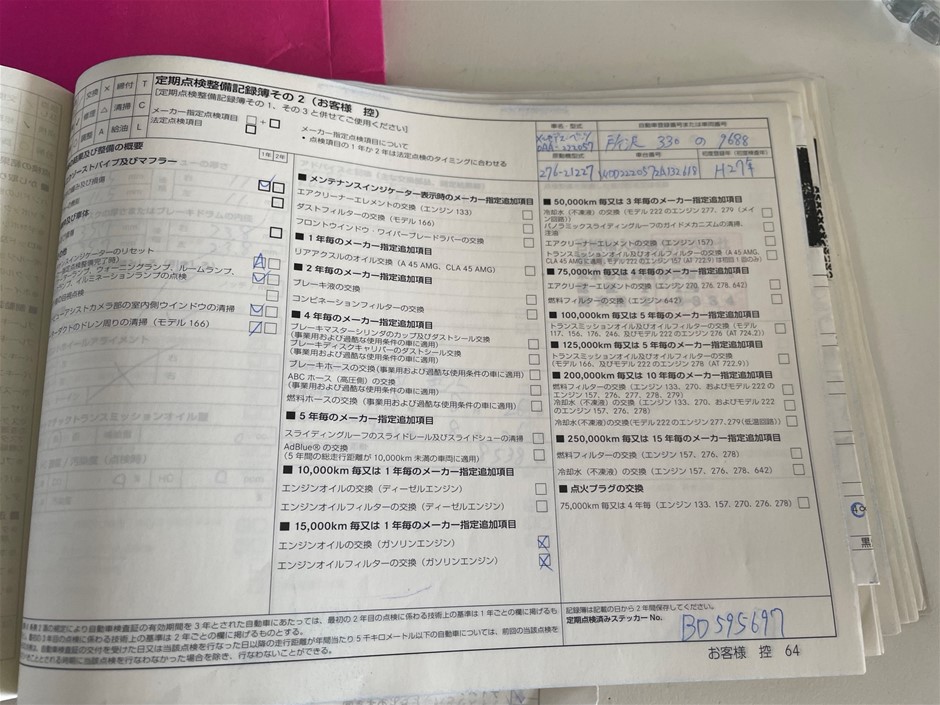 交換 × 締付 T
修理 △ 清掃 C
調整 A 給油 L
定期点検整備記録簿その２（お客様 控）
[定期点検整備記録簿その１、その３と併せてご使用ください]
メーカー指定点検項目 □+□
法定点検項目 □
メーカー指定点検項目について
・点検項目の１年か２年は法定点検のタイミングに合わせる
車名・型式
自動車登録番号または車両番号
DAA-222057
所沢 330 の 9688
原動機型式
車台番号
初度登録年（初度検査年）
276-21227
H27年
整備の概要
1年 2年
パイプ及びマフラー
車体
インジケーターのリセット
ランプ、ウォーニングランプ、ルームランプ、
ランプ、イルミネーションランプの点検
カメラ部の室内側ウインドウの清掃
ダクトのドレン周りの清掃（モデル 166）
■ メンテナンスインジケーター表示時のメーカー指定追加項目
エアクリーナーエレメントの交換（エンジン 133）
ダストフィルターの交換（モデル 166）
フロントウインドウ・ワイパーブレードラバーの交換
■ １年毎のメーカー指定追加項目
リアアクスルのオイル交換（A 45 AMG、CLA 45 AMG）
■ ２年毎のメーカー指定追加項目
ブレーキ液の交換
コンビネーションフィルターの交換
■ ４年毎のメーカー指定追加項目
ブレーキマスターシリンダのカップ及びダストシール交換
（事業用および過酷な使用条件の車に適用）
ブレーキディスクキャリパーのダストシール交換
（事業用および過酷な使用条件の車に適用）
ブレーキホースの交換（事業用および過酷な使用条件の車に適用）
ABC ホース（高圧側）の交換
（事業用および過酷な使用条件の車に適用）
燃料ホースの交換（事業用および過酷な使用条件の車に適用）
■ ５年毎のメーカー指定追加項目
スライディングルーフのスライドレール及びスライドシューの清掃
AdBlue® の交換
（５年間の総走行距離が 10,000km 未満の車両に適用）
■ 10,000km 毎又は１年毎のメーカー指定追加項目
エンジンオイルの交換（ディーゼルエンジン）
エンジンオイルフィルターの交換（ディーゼルエンジン）
■ 15,000km 毎又は１年毎のメーカー指定追加項目
エンジンオイルの交換（ガソリンエンジン）
エンジンオイルフィルターの交換（ガソリンエンジン）
■ 50,000km 毎又は３年毎のメーカー指定追加項目
冷却水（不凍液）の交換（モデル 222 のエンジン 277、279（メイン回路））
パノラミックスライディングルーフのガイドメカニズムの清掃、
注油
エアクリーナーエレメントの交換（エンジン 157）
トランスミッションオイル及びオイルフィルターの交換（A 45 AMG、
CLA 45 AMG に適用、モデル 222 のエンジン 157（AT 722.9）は初回１回のみ）
■ 75,000km 毎又は４年毎のメーカー指定追加項目
エアクリーナーエレメントの交換（エンジン 270、276、278、642）
燃料フィルターの交換（エンジン 642）
■ 100,000km 毎又は５年毎のメーカー指定追加項目
トランスミッションオイル及びオイルフィルターの交換（モデル
117、156、176、246、及びモデル 222 のエンジン 276（AT 724.2））
■ 125,000km 毎又は５年毎のメーカー指定追加項目
トランスミッションオイル及びオイルフィルターの交換
（モデル 166、及びモデル 222 のエンジン 278（AT 722.9））
■ 200,000km 毎又は 10 年毎のメーカー指定追加項目
燃料フィルターの交換（エンジン 133、270、およびモデル 222 の
エンジン 157、276、277、278、279）
冷却水（不凍液）の交換（エンジン 133、270、およびモデル 222
のエンジン 157、276、278）
冷却水（不凍液）の交換（モデル 222 のエンジン 277、279（低温回路））
■ 250,000km 毎又は 15 年毎のメーカー指定追加項目
燃料フィルターの交換（エンジン 157、276、278）
冷却水（不凍液）の交換（エンジン 157、276、278、642）
■ 点火プラグの交換
75,000km 毎又は４年毎（エンジン 133、157、270、276、278）
の規定により自動車検査証の有効期間を３年とされた自動車にあたっては、最初の２年目の点検に係わる技術上の基準は１年ごとの欄に掲げるも
２年目の点検に係わる技術上の基準は２年ごとの欄に掲げるものとする。
自動車検査証の交付を受けた日又は当該点検を行なった日以降の走行距離が年間当たり５千キロメートル以下の自動車については、前回の当該点検を
こととされる時期に当該点検を行なわなかった場合を除き、行なわないことができる。
記録簿は記載の日から２年間保存してください。
定期点検済みステッカー No.
BD595697
お客様 控 64